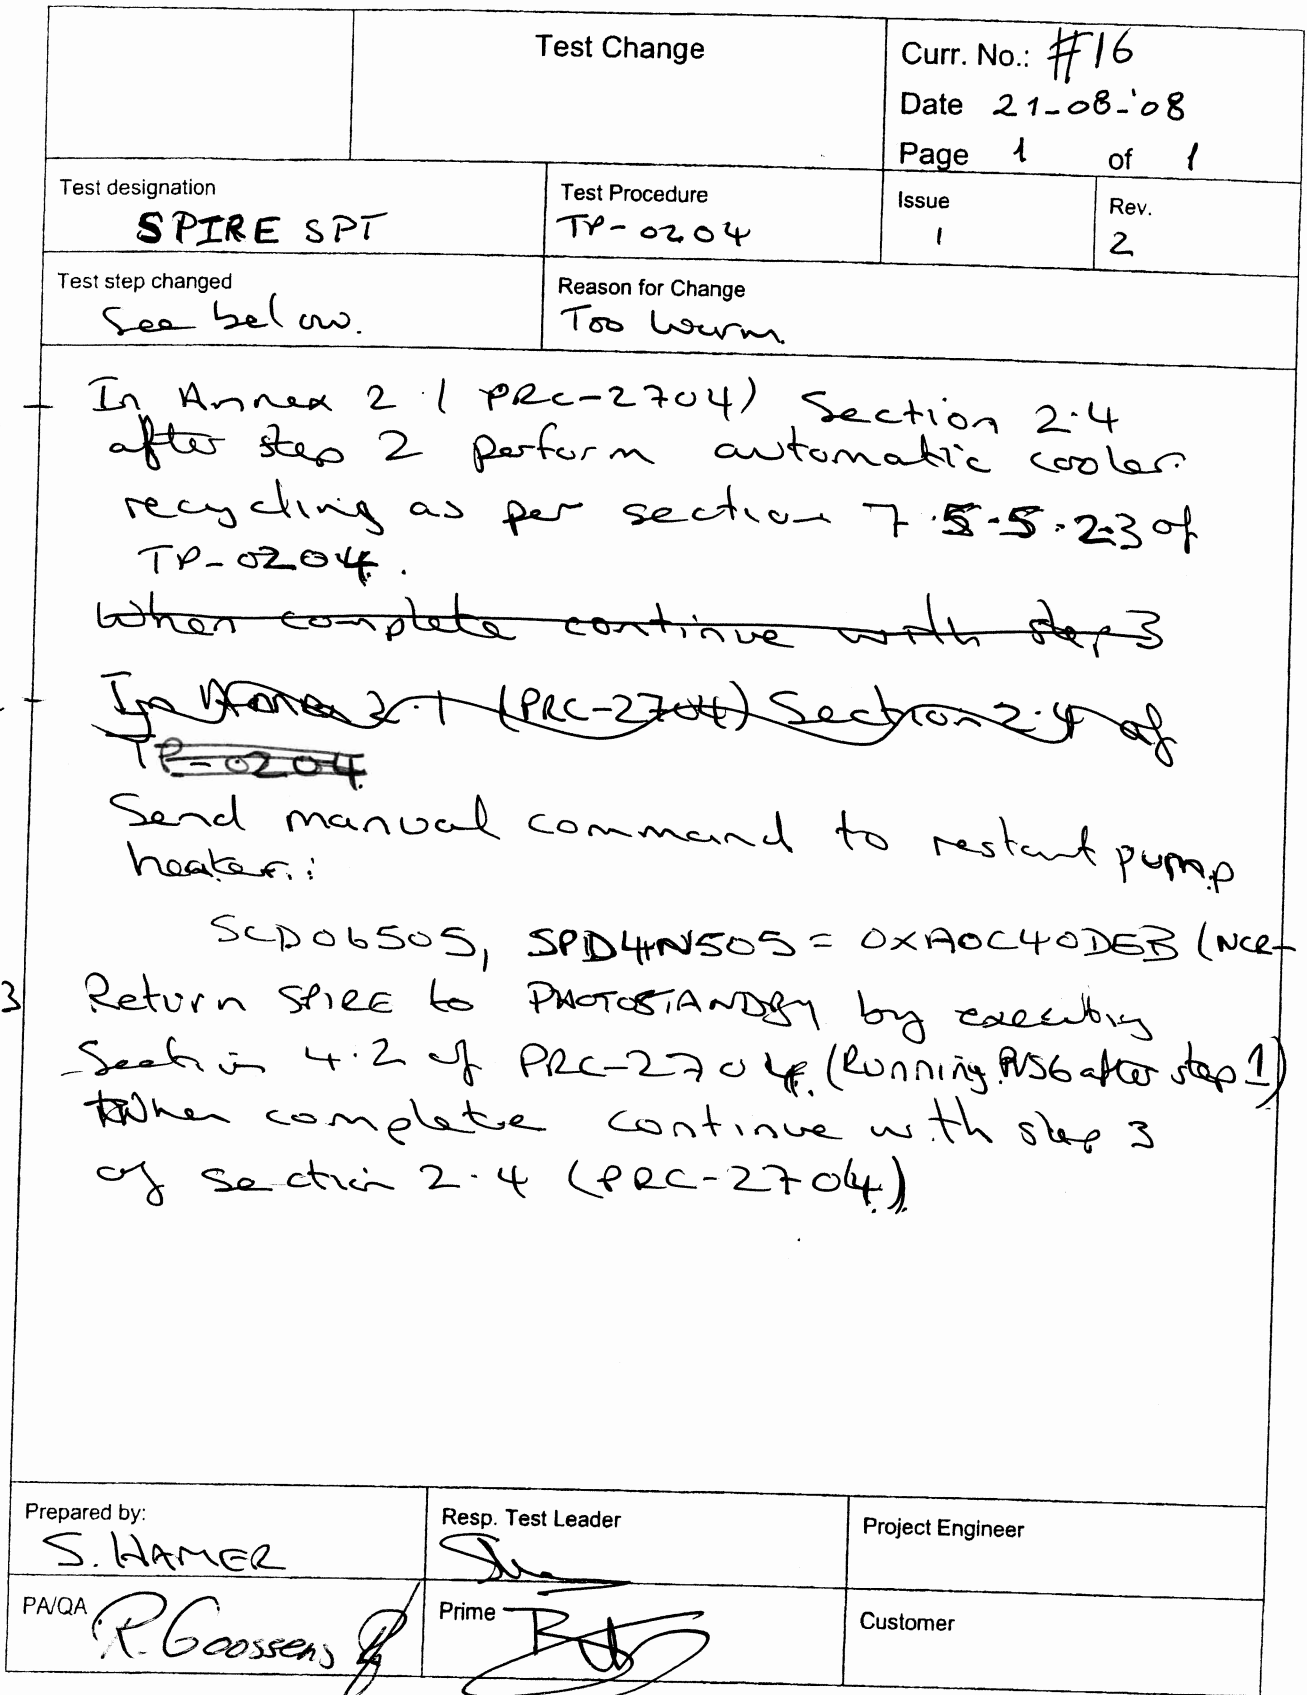 Test Change
Curr. No.: #16
Date 21-08-'08
Page 1 of 1
Test designation
SPIRE SPT
Test Procedure
TP-0204
Issue
1
Rev.
2
Test step changed
See below.
Reason for Change
Too warm.
- In Annex 2.1 (PRC-2704) Section 2.4
after step 2 perform automatic cooler
recycling as per section 7.5.5.2.3 of
TP-0204.
When complete continue with step 3
- In Annex 2.1 (PRC-2704) Section 2.4 of
TP-0204
Send manual command to restart pump
heater.:
SCD06505, SPD4N505 = 0xA0C40DEB (NCR-
3
Return SPIRE to PHOTOSTANDBY by executing
Section 4.2 of PRC-2704. (Running after step 1)
When complete continue with step 3
of section 2.4 (PRC-2704)
Prepared by:
S. HAMER
Resp. Test Leader
Project Engineer
PA/QA
R. Goossens
Prime
Customer